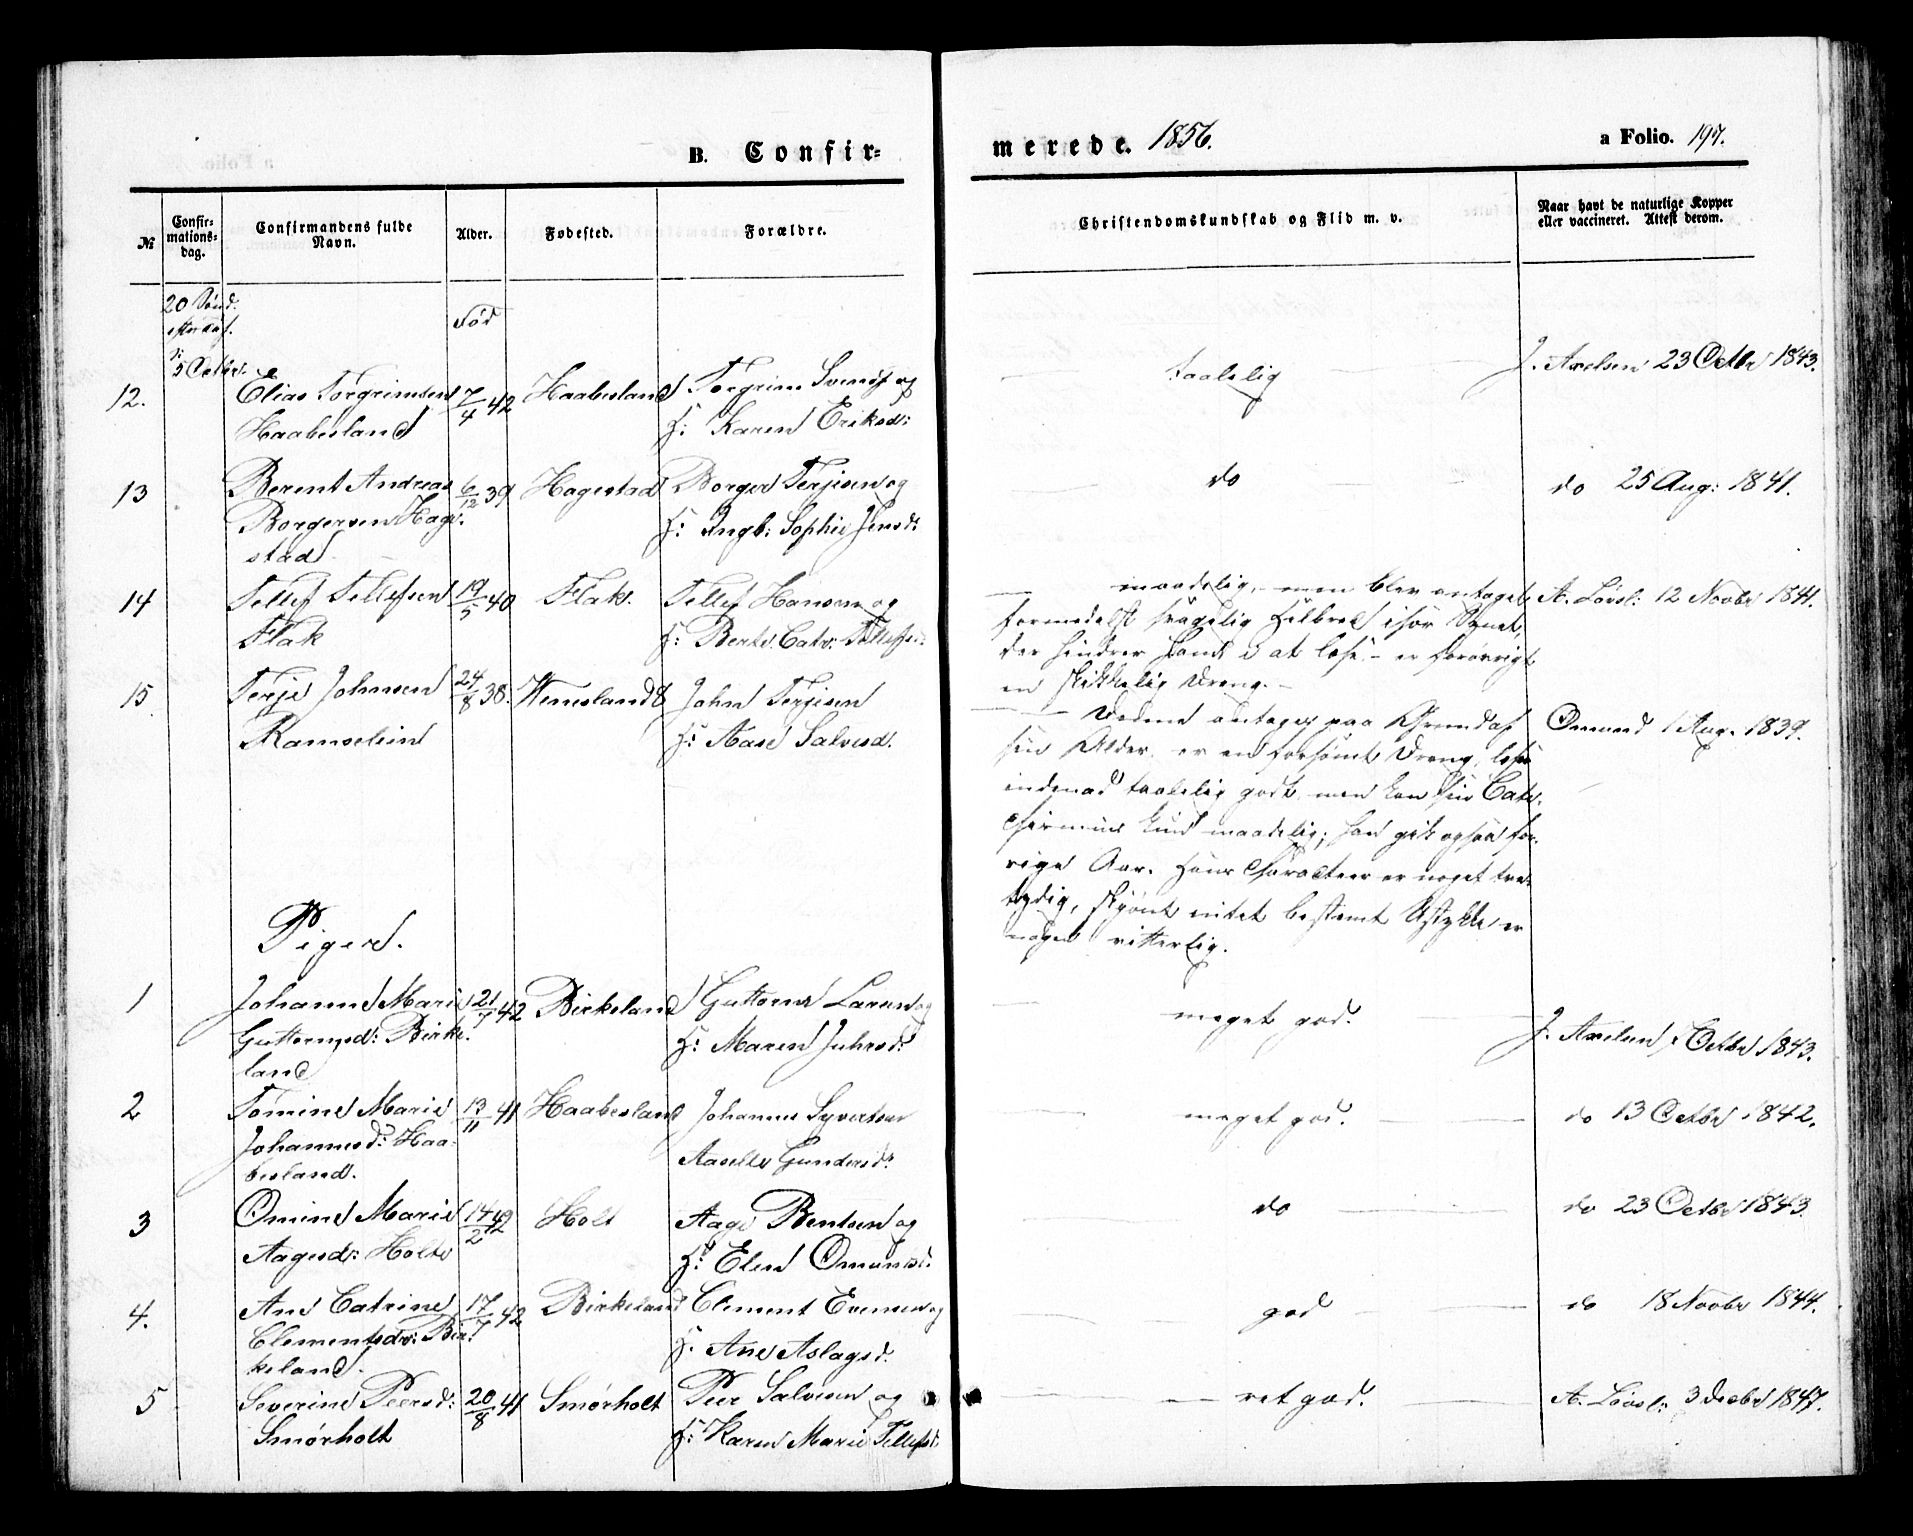 B. Confir-
merede. 1856.
a Folio. 197.
№
Confir-
mations-
dag.
Confirmandens fulde
Navn.
Alder.
Fødested.
Forældre.
Christendomskundskab og Flid m. v.
Naar havt de naturlige Kopper
eller vaccineret. Attest derom.
20 Sønd.
5 Octbr.
Fød
12.
Elias Torgrimsen
Haabesland
7/4 42
Haabesland
Torgrim Svens: og
H: Karen Eriksd:
taalelig
J. Axelsen 23 Octbr 1843.
13
Berent Andreas
Borgersen Hage-
stad
6/12 39
Hagestad
Borger Terjesen og
H: Ingb: Sophie Jensd:
do
do 25 Aug: 1841.
14
Tellef Tellefsen
Flak
19/5 40
Flak.
Tellef Hansen og
H: Berte Catr: Tellefsd:
maadelig, men blev antaget
formedelst svagelig Helbred især Synet,
der hindrer ham i at læse – er forøvrigt
en skikkelig Dreng. –
A. Løvsl: 12 Novbr 1841.
15
Terje Johnsen
Ramselein
24/8 38.
Wemesland
John Terjesen
H: Aase Salvesd.
Denne antages paa Grund af
sin Alder, er en forsømt Dreng, læser
indenad taalelig godt, men kan sin Cate-
chismus kun maadelig; han gik ogsaa for-
rige Aar. Hans Characteer er noget tve-
tydig, skjønt intet bestemt Ustykke er
noget vitterlig.
Omund 1 Aug. 1839.
Piger.
1
Johanne Marie
Guttormsd: Birke-
land
21/7 42
Birkeland
Guttorm Larsen og
H: Maren Juhrsd:
meget god.
J. Axelsen Octbr 1843.
2
Tomine Marie
Johannesd: Haa-
besland.
13/11 41
Haabesland
Johannes Syvertsen
Aaselle Gundersd:
meget god.
do 13 Octbr 1842.
3
Omine Marie
Aagesd: Holte
14/2 42
Holt
Aage Bentsen og
H: Elen Omundsd:
do
do 23 Octbr 1843.
4.
Ane Catrine
Clementsdr: Bir-
keland.
17/7 42
Birkeland
Clement Evensen og
H: Ane Aslagsd.
god
do 18 Novbr 1844.
5
Severine Peersd:
Smørholt
20/8 41
Smørholt
Peer Salvesen og
H: Karen Marie Tellefsd:
ret god.
A. Løvsl: 3 Decbr 1847.